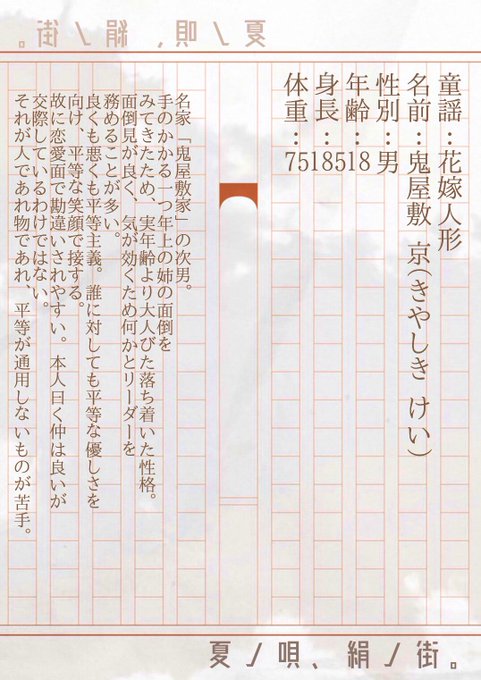 夏ノ唄、絹ノ街。
童謡：花嫁人形
名前：鬼屋敷 京(きやしき けい)
性別：男
年齢：18
身長：185
体重：75
名家「鬼屋敷家」の次男。
手のかかる一つ年上の姉の面倒を
みてきたため、実年齢より大人びた落ち着いた性格。
面倒見が良く、気が効くため何かとリーダーを
務めることが多い。
良くも悪くも平等主義。誰に対しても平等な優しさを
向け、平等な笑顔で接する。
故に恋愛面で勘違いされやすい。本人曰く仲は良いが
交際しているわけではない。
それが人であれ物であれ、平等が通用しないものが苦手。
夏ノ唄、絹ノ街。